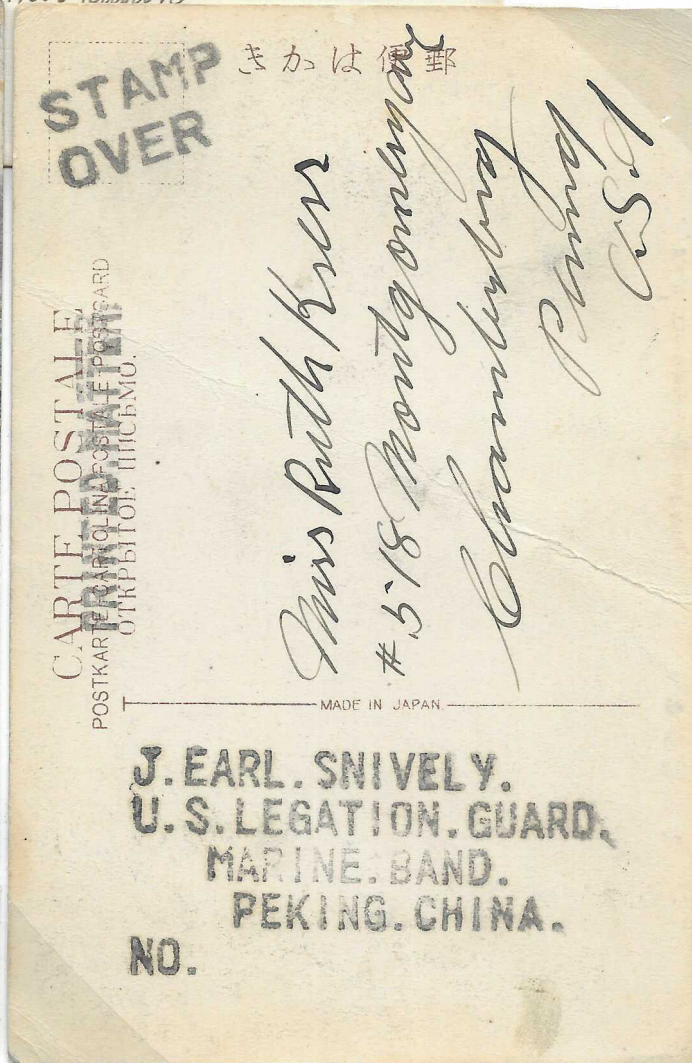 STAMP
OVER
きかは便郵
CARTE POSTALE
PRINTED MATTER
POSTKARTE CARTOLINA POSTALE POSTCARD
ОТКРЫТОЕ ПИСЬМО.
Miss Ruth Kress
#518 Montgomery ave
Chambersburg
Penna
USA
MADE IN JAPAN.
J. EARL. SNIVELY.
U.S. LEGATION. GUARD.
MARINE. BAND.
PEKING. CHINA.
NO.